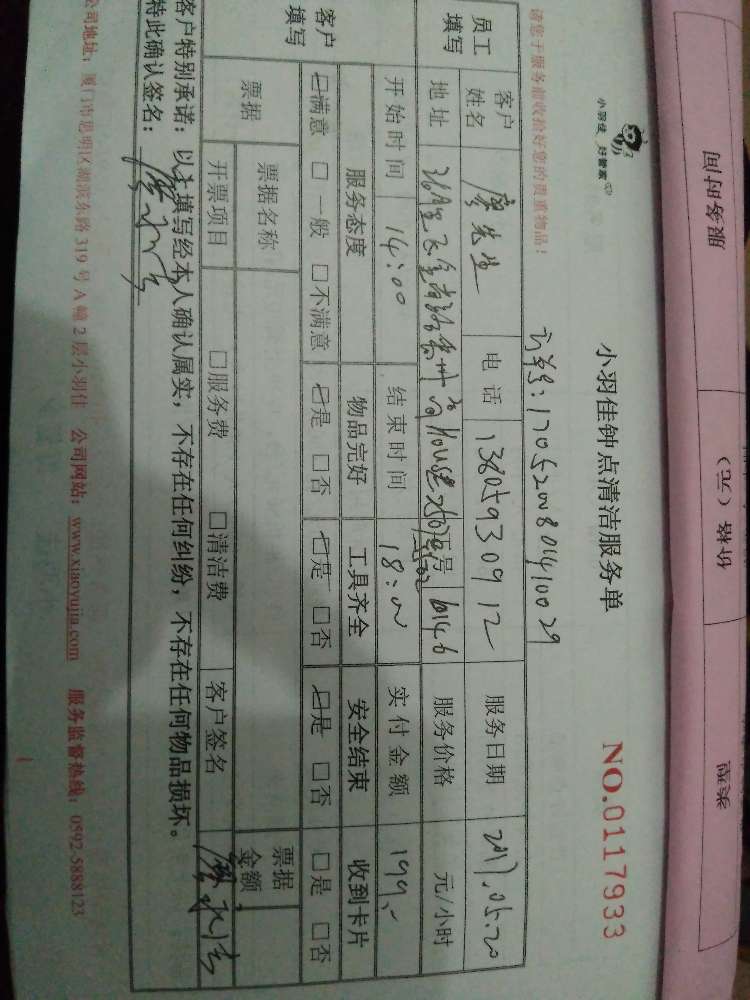 服务时间
价格（元）
签章
小羽佳 好管家
小羽佳钟点清洁服务单
NO.0117933
订单号：170520080410029
请您于服务前收拾好您的贵重物品！
员工填写
客户姓名 廖先生 电话 13805930912 服务日期 2017.05.20
地址 House 工号 60146 服务价格 元/小时
开始时间 14:00 结束时间 18:00 实付金额 199.-
客户填写
服务态度 物品完好 工具齐全 安全结束 收到卡片
☑满意 □一般 □不满意 ☑是 □否 ☑是 □否 ☑是 □否 □是 □否
票据 票据名称 票据金额
开票项目 □服务费 □清洁费 客户签名
客户特别承诺：以上填写经本人确认属实，不存在任何纠纷，不存在任何物品损坏。
特此确认签名：
公司地址：厦门市思明区湖滨东路319号A幢2层小羽佳 公司网站：www.xiaoyujia.com 服务监督热线：0592-5888123